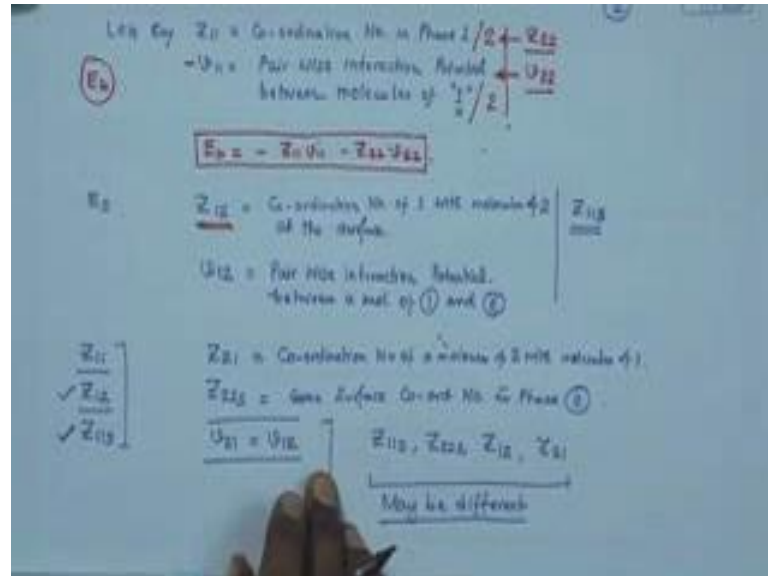 Lets Say Z11 = Co-ordination No. in Phase 1/2 ← Z22
Eb
-υ11 = Pair Wise interaction Potential ← υ22
between molecules of "1"/2
Eb = - Z11 υ11 - Z22 υ22
Es
Z12 = Co-ordination No of 1 with molecules of 2
at the surface.
Z11S
υ12 = Pair Wise interaction Potential
between a mol. of ① and ②
Z11
✓ Z12
✓ Z11S
Z21 = Co-ordination No of a molecule of 2 with molecules of 1.
Z22S = Same Surface Co-ord No. in Phase ②.
υ21 = υ12
Z11S, Z22S, Z12, Z21
May be different